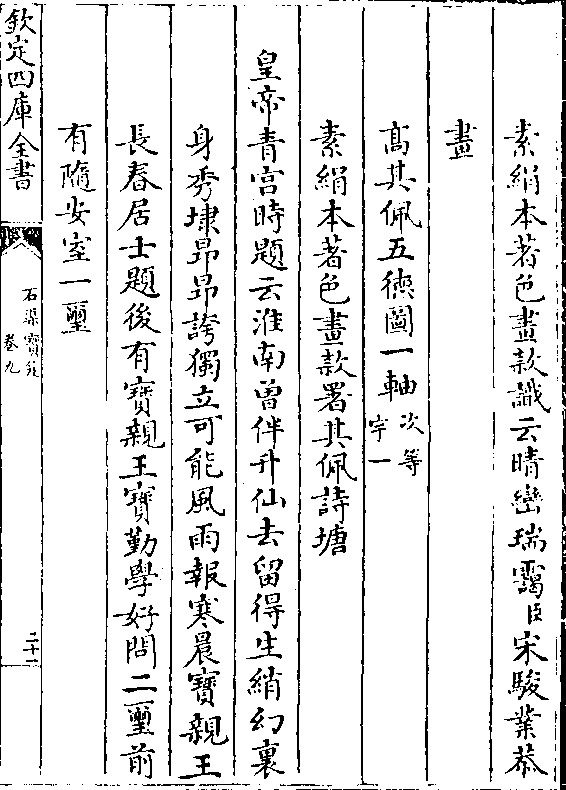 素絹本著色畫款識云晴巒瑞靄臣宋駿業恭
畫
高其佩五徳圖一軸次等宇一
素絹本著色畫款署其佩詩塘
皇帝青宫時題云淮南曽伴升仙去留得生綃幻裏
身秀㙛昻昻誇獨立可能風雨報寒晨寶親王
長春居士題後有寶親王寶勤學好問二璽前
有隨安室一璽
欽定四庫全書
石渠寶笈
卷九
二十一